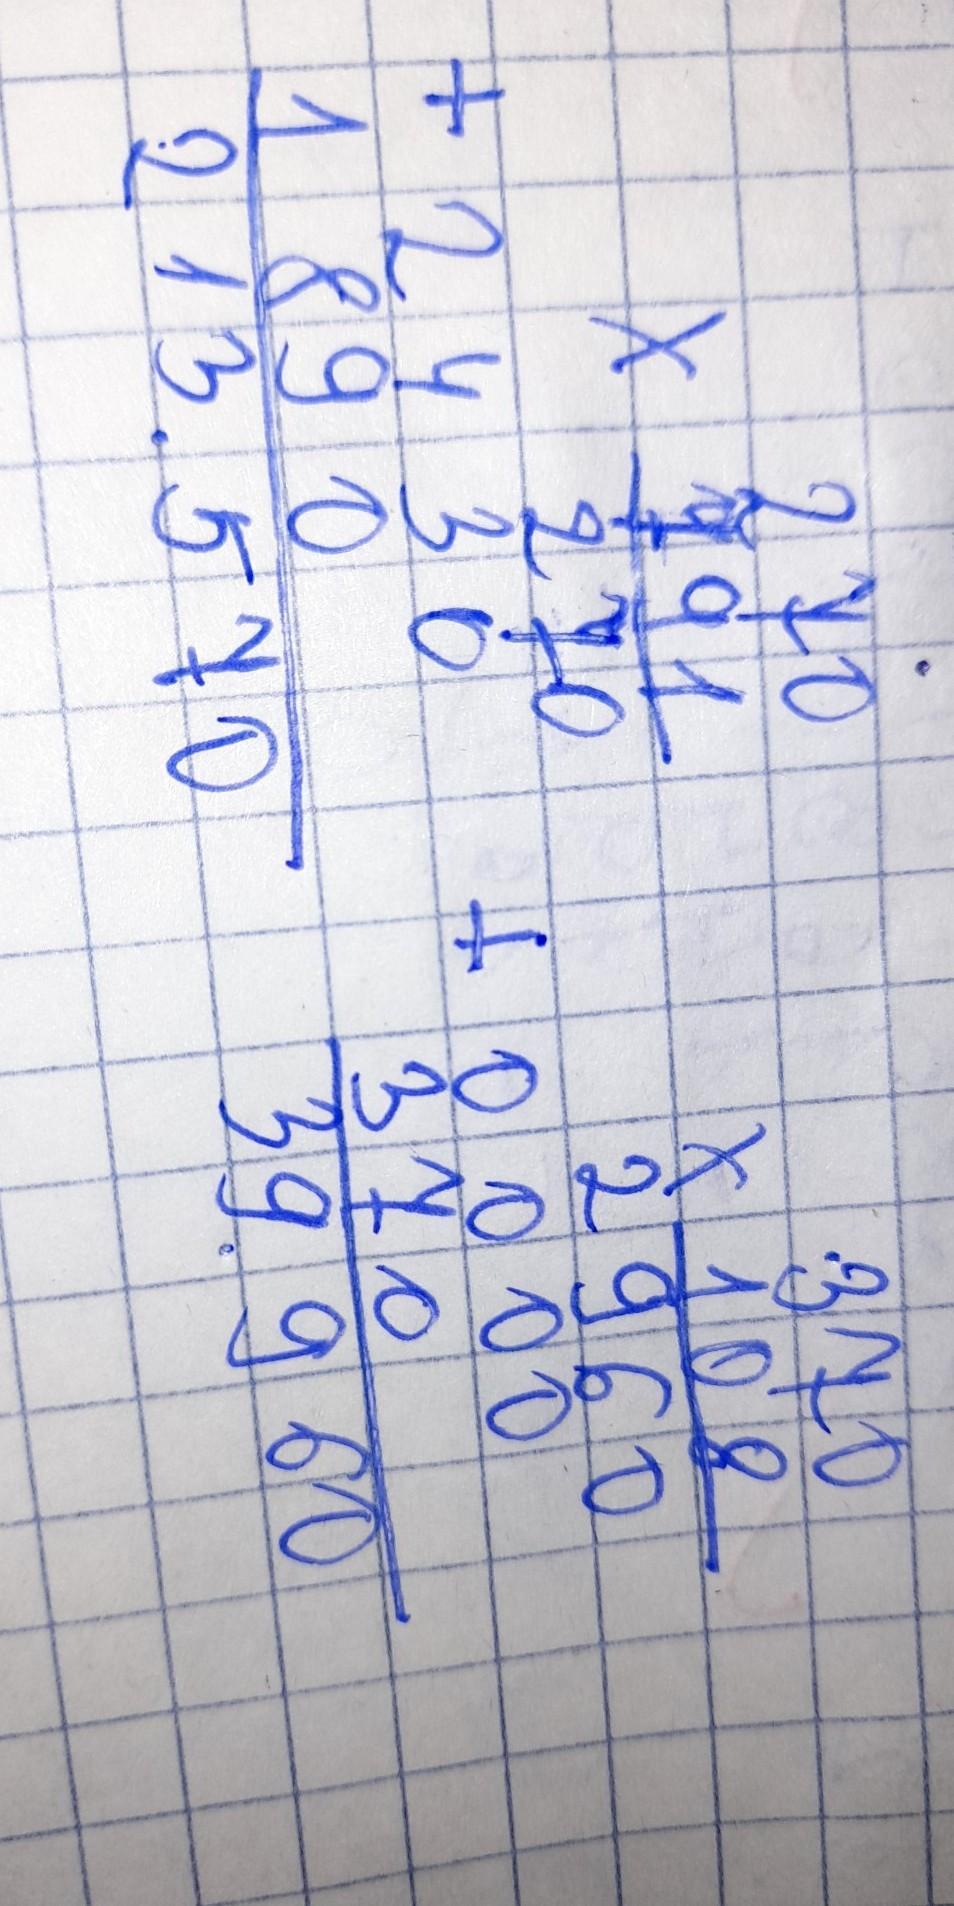 270
X 791
270
+ 2430
1890
213.570
370
X 108
2960
+ 0000
370
39.960